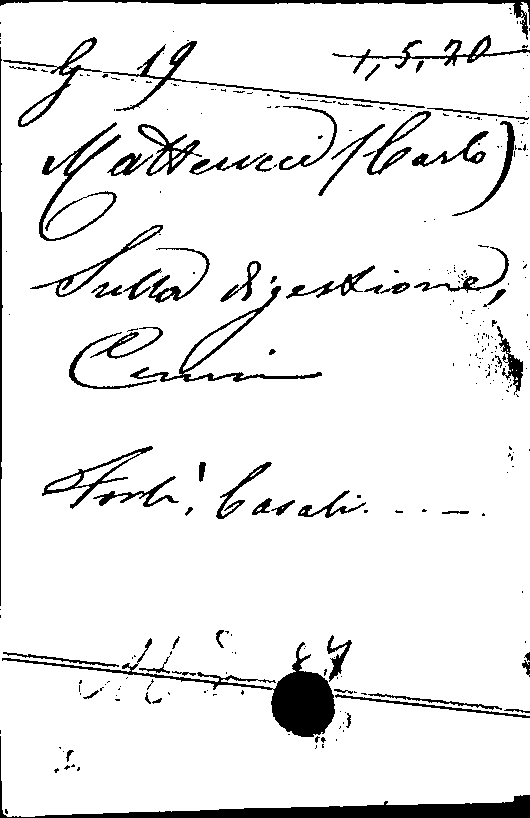 G. 19 1, 5, 20
Matteucci (Carlo)
Sulla digestione,
Cenni
Forlì, Casali. - - - .
M 87